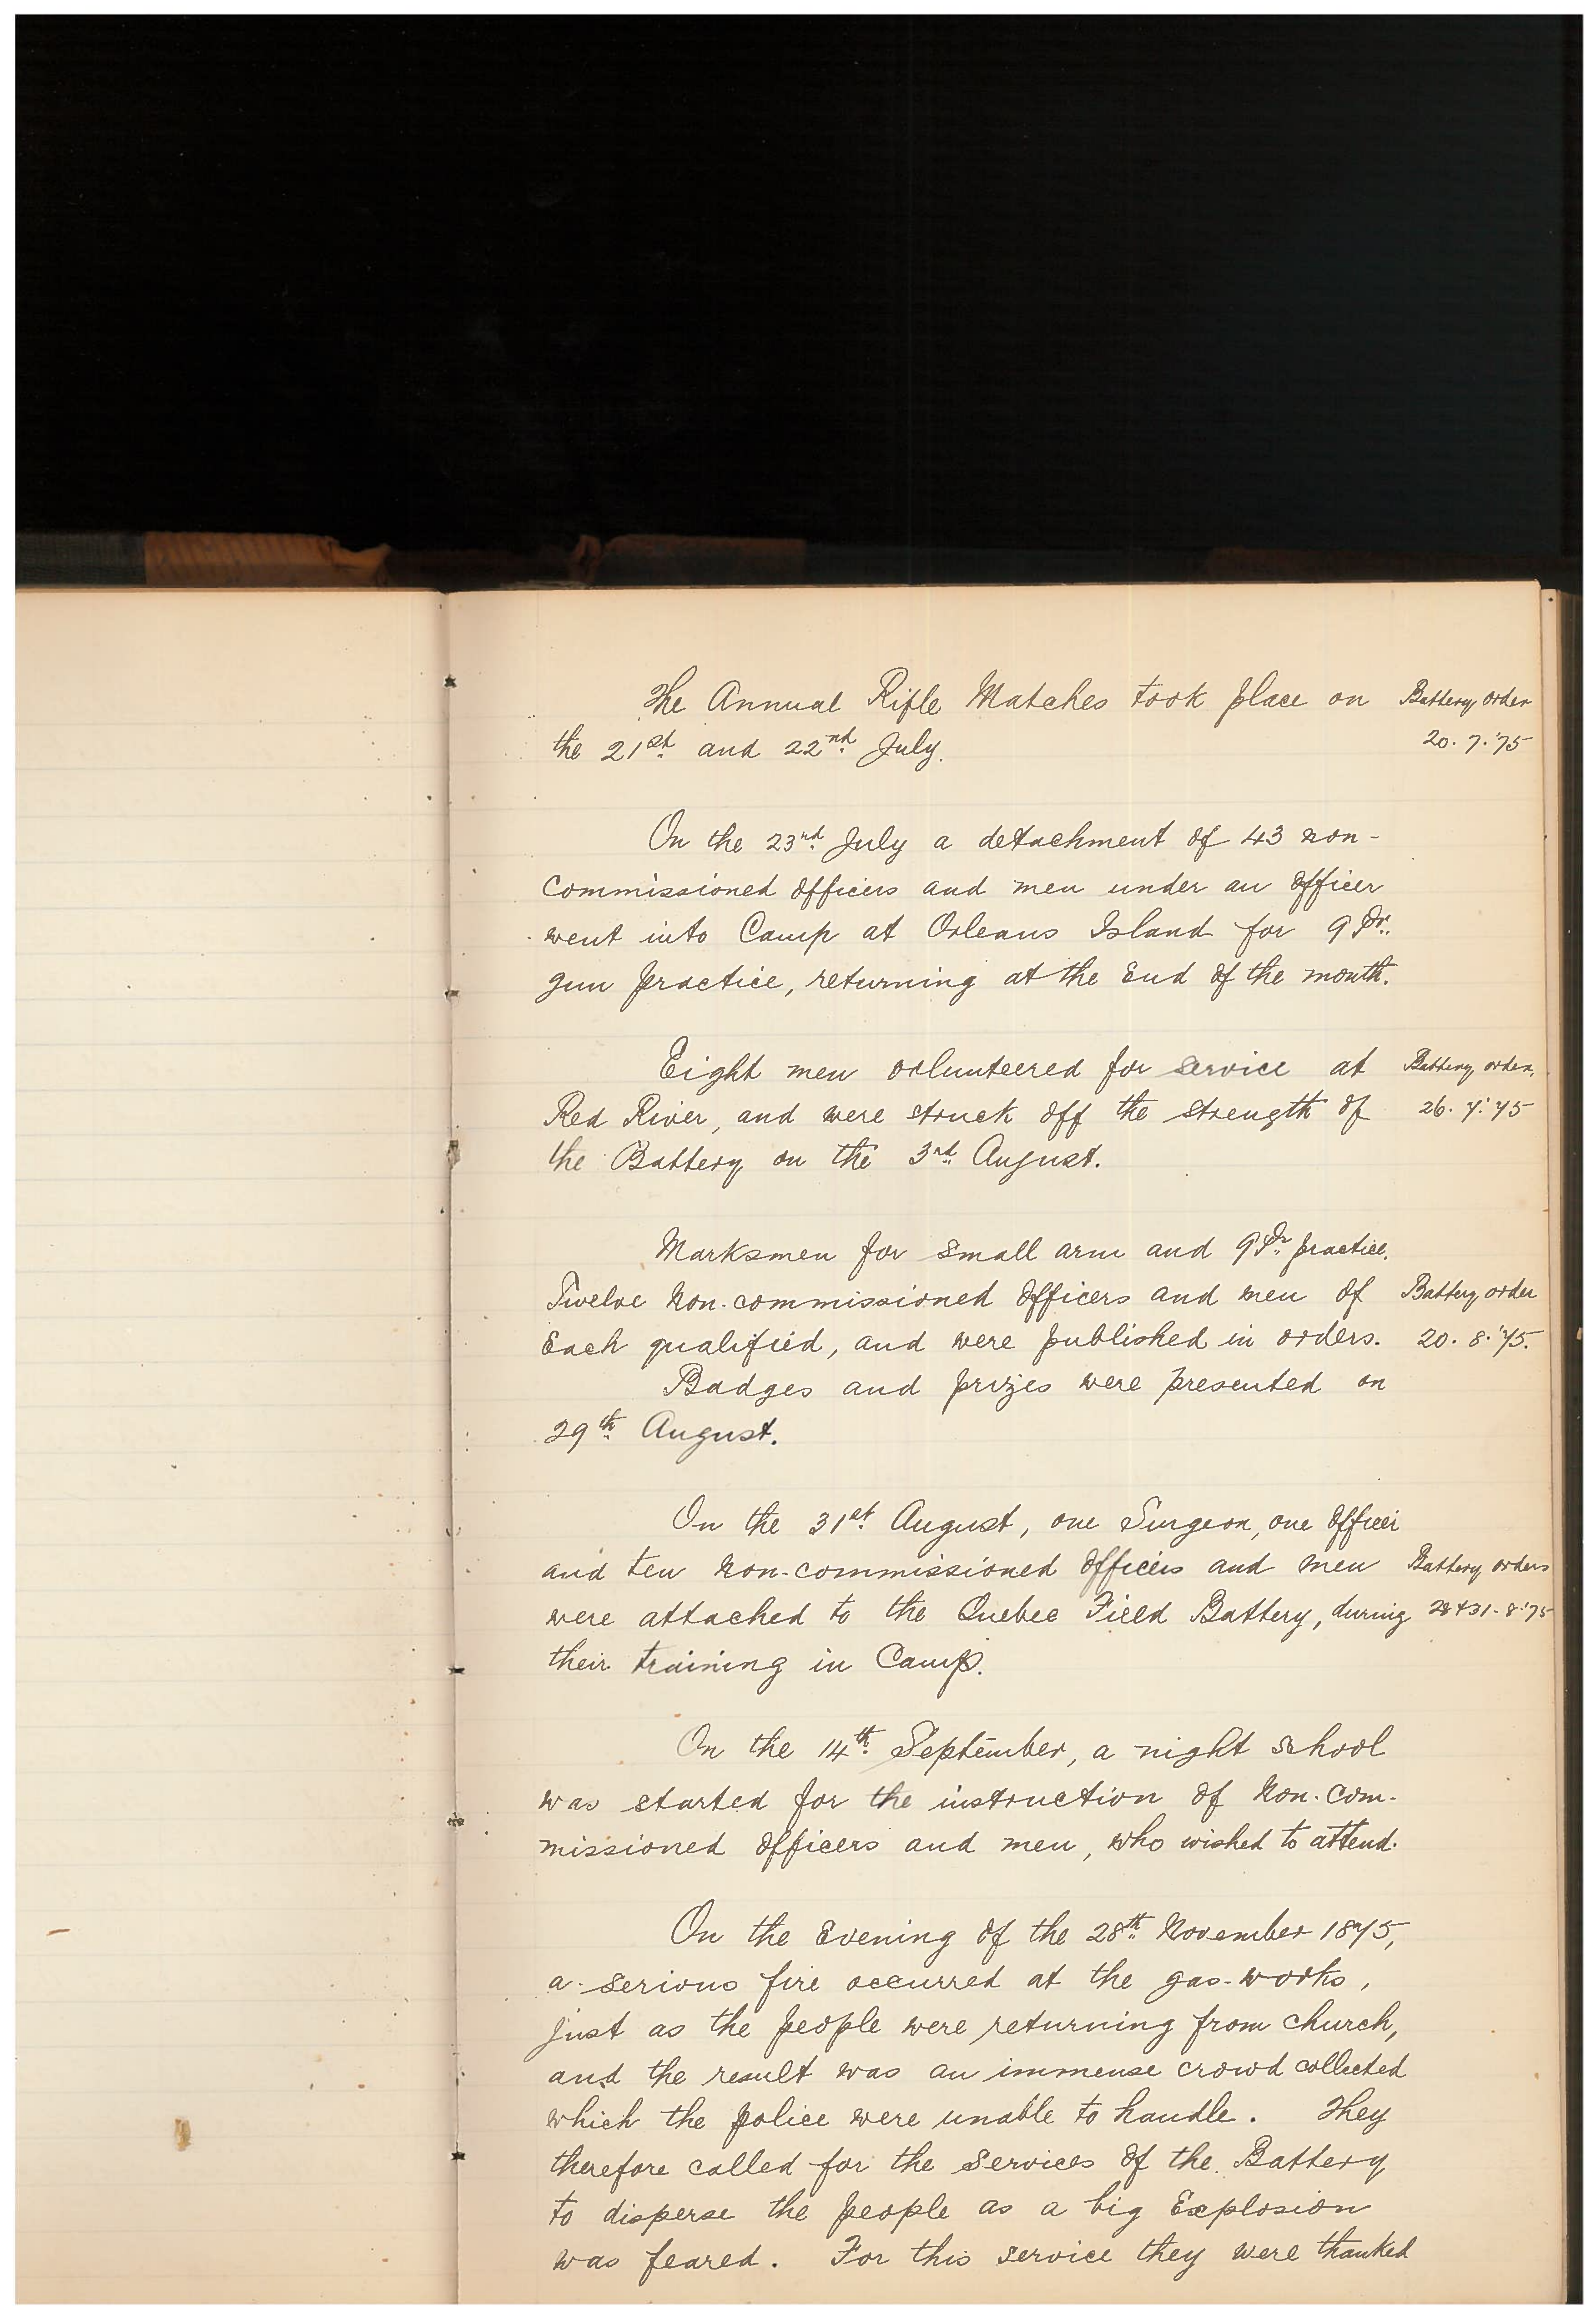 The Annual Rifle Matches took place on Battery order
the 21st and 22nd July. 20.7.'75
On the 23rd July a detachment of 43 non-
commissioned officers and men under an officer
went into Camp at Orleans Island for 9 Pr.
gun practice, returning at the end of the month.
Eight men volunteered for service at Battery order,
Red River, and were struck off the strength of 26.7.'75
the Battery on the 3rd August.
Marksmen for small arm and 9 Pr. practice.
Twelve non-commissioned officers and men of Battery order
each qualified, and were published in orders. 20.8.'75.
Badges and prizes were presented on
29th August.
On the 31st August, one Surgeon, one officer
and ten non-commissioned officers and men Battery orders
were attached to the Quebec Field Battery, during 28+31-8-'75
their training in Camp.
On the 14th September, a night school
was started for the instruction of non-com-
missioned officers and men, who wished to attend.
On the evening of the 28th November 1875,
a serious fire occurred at the gas-works,
just as the people were returning from church,
and the result was an immense crowd collected
which the police were unable to handle. They
therefore called for the services of the Battery
to disperse the people as a big explosion
was feared. For this service they were thanked